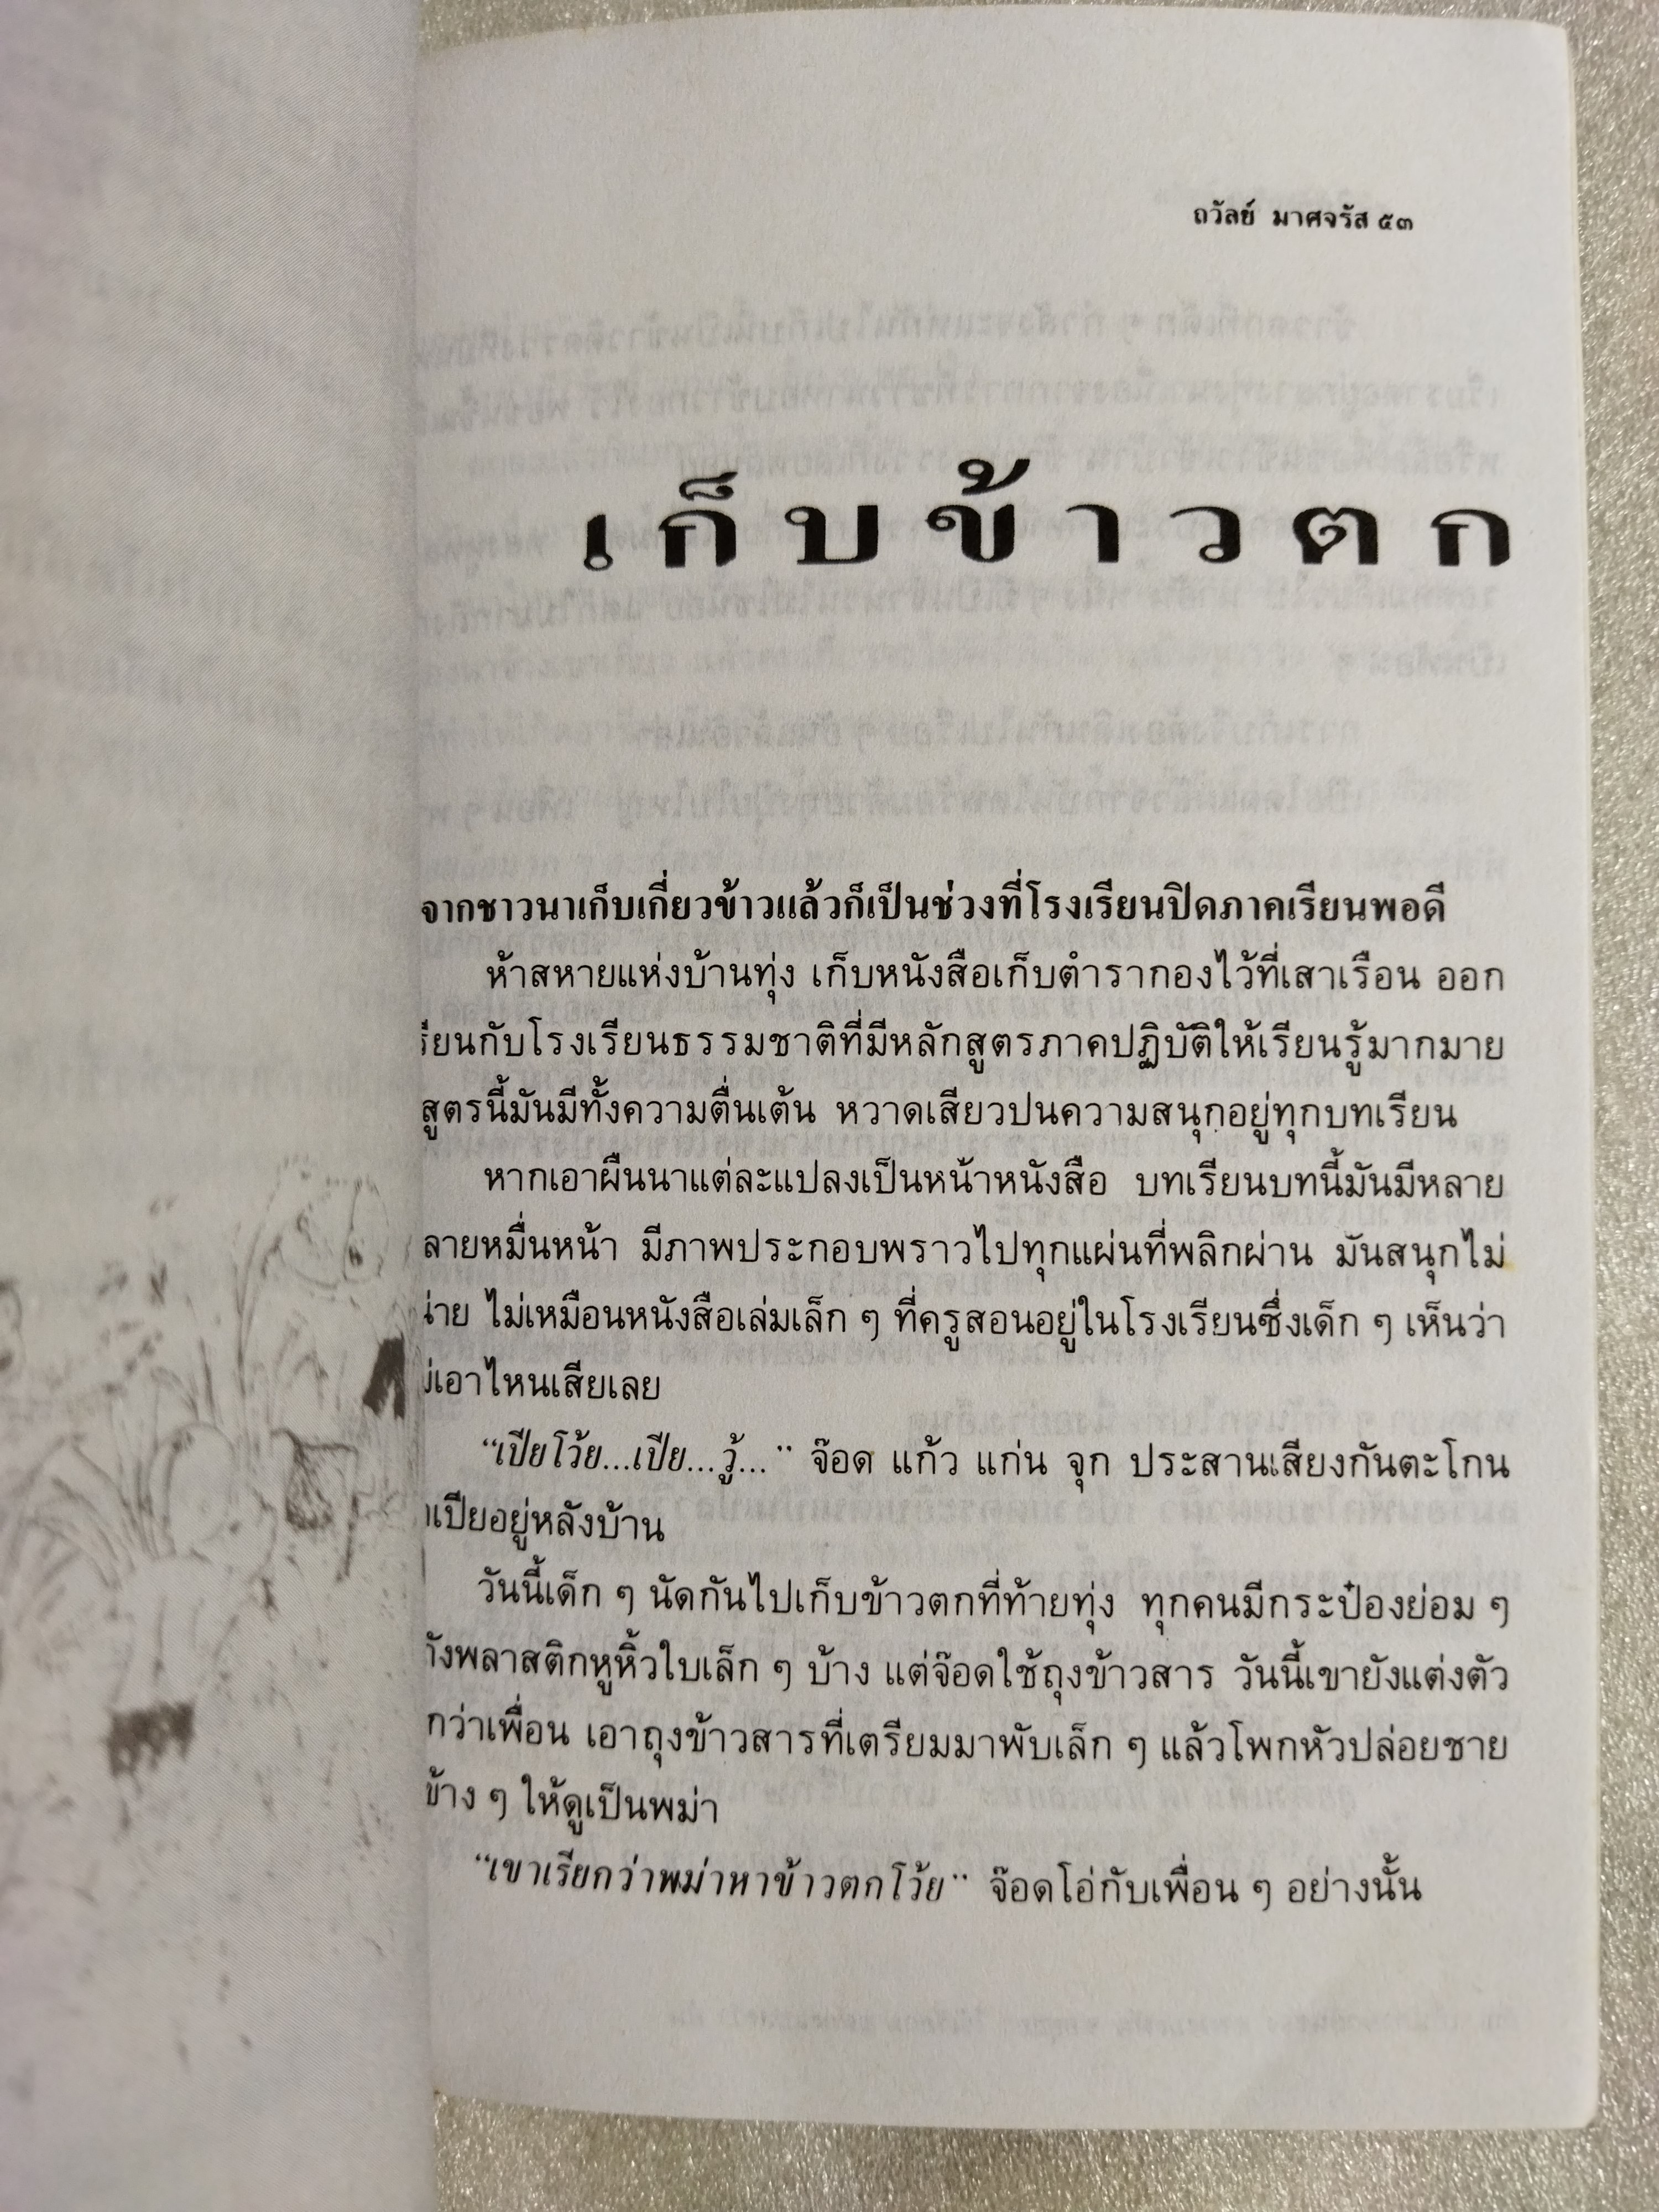 ถวัลย์ มาศจรัส ๕๓
เก็บข้าวตก
จากชาวนาเก็บเกี่ยวข้าวแล้วก็เป็นช่วงที่โรงเรียนปิดภาคเรียนพอดี
ห้าสหายแห่งบ้านทุ่ง เก็บหนังสือเก็บตำรากองไว้ที่เสาเรือน ออก
รียนกับโรงเรียนธรรมชาติที่มีหลักสูตรภาคปฏิบัติให้เรียนรู้มากมาย
สูตรนี้มันมีทั้งความตื่นเต้น หวาดเสียวปนความสนุกอยู่ทุกบทเรียน
หากเอาผืนนาแต่ละแปลงเป็นหน้าหนังสือ บทเรียนบทนี้มันมีหลาย
ลายหมื่นหน้า มีภาพประกอบพราวไปทุกแผ่นที่พลิกผ่าน มันสนุกไม่
น่าย ไม่เหมือนหนังสือเล่มเล็ก ๆ ที่ครูสอนอยู่ในโรงเรียนซึ่งเด็ก ๆ เห็นว่า
เอาไหนเสียเลย
“เปียโว้ย...เปีย...วู้...” จ๊อด แก้ว แก่น จุก ประสานเสียงกันตะโกน
เปียอยู่หลังบ้าน
วันนี้เด็ก ๆ นัดกันไปเก็บข้าวตกที่ท้ายทุ่ง ทุกคนมีกระป๋องย่อม ๆ
ังพลาสติกหูหิ้วใบเล็ก ๆ บ้าง แต่จ๊อดใช้ถุงข้าวสาร วันนี้เขายังแต่งตัว
กว่าเพื่อน เอาถุงข้าวสารที่เตรียมมาพับเล็ก ๆ แล้วโพกหัวปล่อยชาย
ข้าง ๆ ให้ดูเป็นพม่า
“เขาเรียกว่าพม่าหาข้าวตกโว้ย” จ๊อดโอ่กับเพื่อน ๆ อย่างนั้น